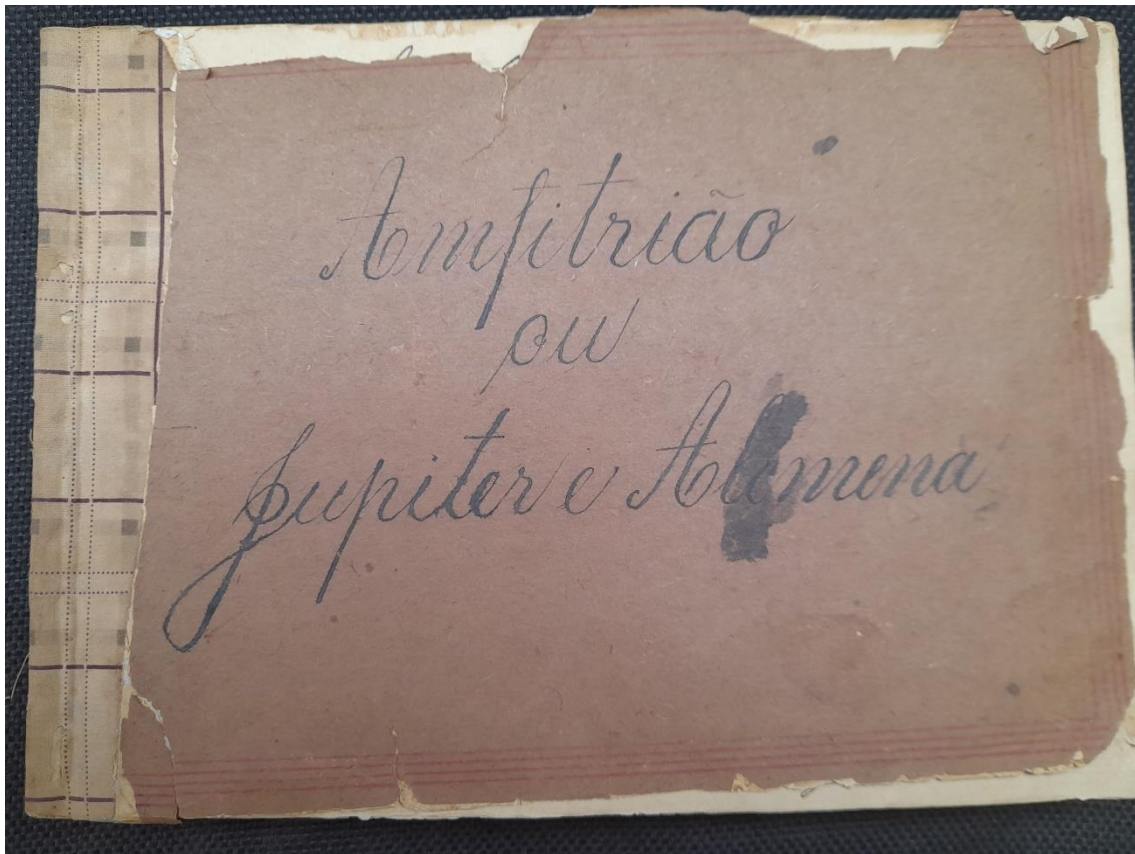 Amfitrião
ou
Jupiter e Alcmena